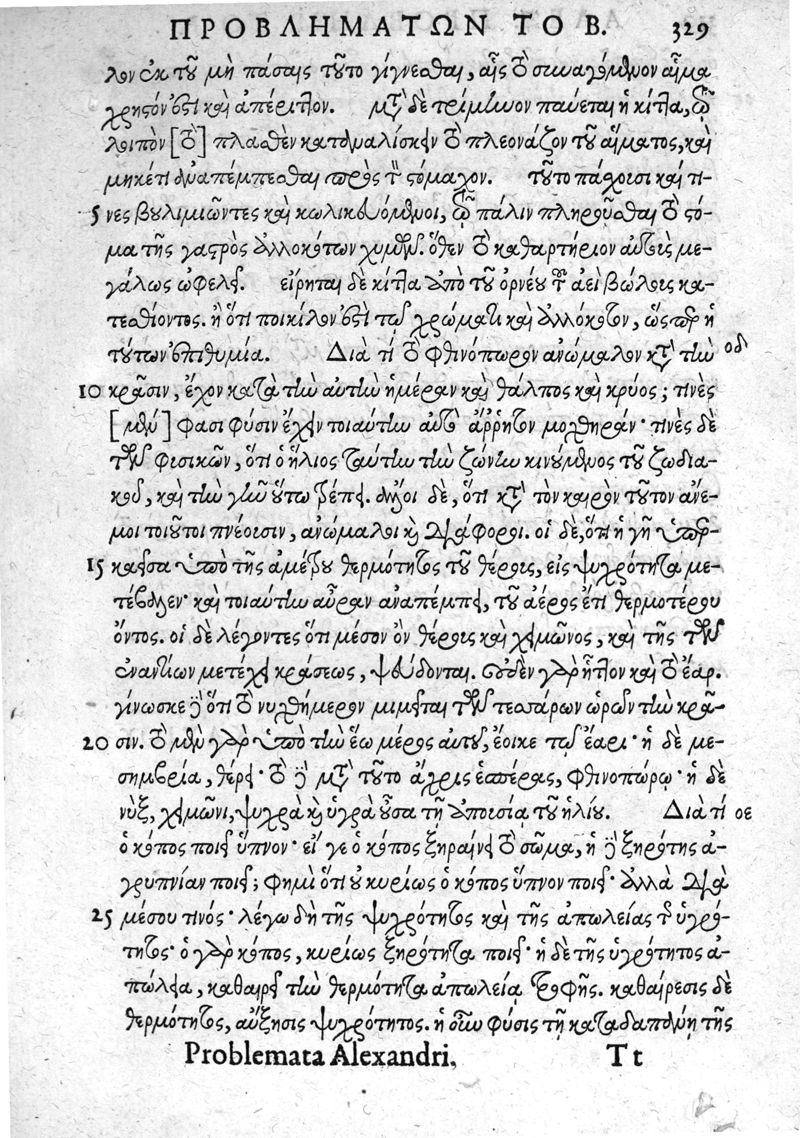 ΠΡΟΒΛΗΜΑΤΩΝ ΤΟ Β. 329
λον ἐκ τοῦ μὴ πάσαις τοῦτο γίγνεσθαι, αἷς τὸ συναγόμενον αἷμα
χρηστόν ἐστι καὶ ἀπέριττον. μετὰ δὲ τρίμηνον παύεται ἡ κίττα, τῷ
λοιπὸν [τὸ] πλασθὲν καταναλίσκειν τὸ πλεονάζον τοῦ αἵματος, καὶ
μηκέτι ἀναπέμπεσθαι πρὸς τὸν στόμαχον. τοῦτο πάσχουσι καί τι-
5 νες βουλιμιῶντες καὶ κωλικευόμενοι, τῷ πάλιν πληροῦσθαι τὸ στό-
μα τῆς γαστρὸς ἀλλοκότων χυμῶν. ὅθεν τὸ καθαρτήριον αὐτοῖς με-
γάλως ὠφελεῖ. εἴρηται δὲ κίττα ἀπὸ τοῦ ὀρνέου τοῦ ἀεὶ βώλοις κα-
τεσθίοντος. ἢ ὅτι ποικίλον ἐστὶ τῷ χρώματι καὶ ἀλλόκοτον, ὥσπερ ἡ
τούτων ἐπιθυμία. Διὰ τί τὸ φθινόπωρον ἀνώμαλον κατὰ τὴν οδ
10 κρᾶσιν, ἔχον κατὰ τὴν αὐτὴν ἡμέραν καὶ θάλπος καὶ κρύος; τινὲς
[μὲν] φασι φύσιν ἔχειν τοιαύτην αὐτὸ ἄρρητον μοχθηράν· τινὲς δὲ
τῶν φυσικῶν, ὅτι ὁ ἥλιος ταύτην τὴν ζώνην κινούμενος τοῦ ζωδια-
κοῦ, καὶ τὴν γῆν οὕτω τρέπει. ἄλλοι δὲ, ὅτι κατὰ τὸν καιρὸν τοῦτον ἄνε-
μοι τοιοῦτοι πνέουσιν, ἀνώμαλοι καὶ διάφοροι. οἱ δὲ, ὅτι ἡ γῆ ὑπερ-
15 καεῖσα ὑπὸ τῆς ἀμέτρου θερμότητος τοῦ θέρους, εἰς ψυχρότητα με-
τέβαλεν· καὶ τοιαύτην αὖραν ἀναπέμπει, τοῦ ἀέρος ἔτι θερμοτέρου
ὄντος. οἱ δὲ λέγοντες ὅτι μέσον ὂν θέρους καὶ χειμῶνος, καὶ τῆς τῶν
ἐναντίων μετέχει κράσεως, ψεύδονται. οὐδὲν γὰρ ἧττον καὶ τὸ ἔαρ.
γίνωσκε δὲ ὅτι τὸ νυχθήμερον μιμεῖται τῶν τεσσάρων ὡρῶν τὴν κρᾶ-
20 σιν. τὸ μὲν γὰρ ὑπὸ τὴν ἕω μέρος αὐτοῦ, ἔοικε τῷ ἔαρι· ἡ δὲ με-
σημβρία, θέρει· τὸ δὲ μετὰ τοῦτο ἄχρις ἑσπέρας, φθινοπώρῳ· ἡ δὲ
νὺξ, χειμῶνι, ψυχρὰ καὶ ὑγρὰ οὖσα τῇ ἀπουσίᾳ τοῦ ἡλίου. Διὰ τί οε
ὁ κόπος ποιεῖ ὕπνον· εἴ γε ὁ κόπος ξηραίνει τὸ σῶμα, ἡ δὲ ξηρότης ἀ-
γρυπνίαν ποιεῖ; φημὶ ὅτι οὐ κυρίως ὁ κόπος ὕπνον ποιεῖ· ἀλλὰ διὰ
25 μέσου τινός· λέγω δὴ τῆς ψυχρότητος καὶ τῆς ἀπωλείας τῆς ὑγρό-
τητος· ὁ γὰρ κόπος, κυρίως ξηρότητα ποιεῖ· ἡ δὲ τῆς ὑγρότητος ἀ-
πώλεια, καθαιρεῖ τὴν θερμότητα ἀπωλείᾳ τροφῆς. καθαίρεσις δὲ
θερμότητος, αὔξησις ψυχρότητος. ἡ οὖν φύσις τῇ καταδαπάνῃ τῆς
Problemata Alexandri, T t